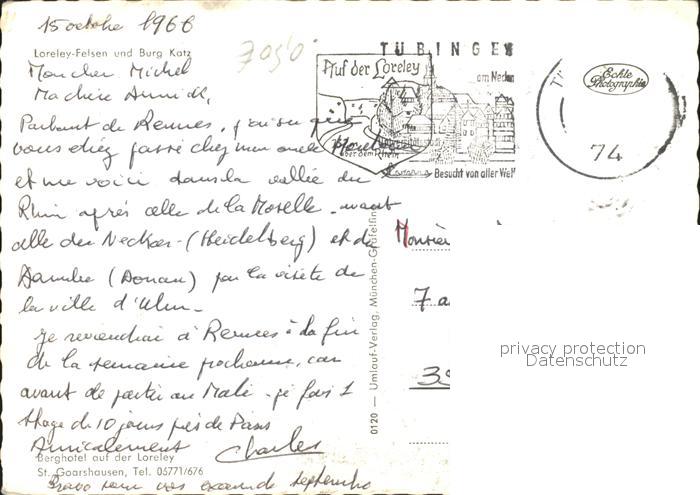 15 octobre 1966
7050
Loreley-Felsen und Burg Katz
Mon cher Michel
Ma chère Annick,
Partant de Rennes, j'ai su que
vous étiez passé chez mon oncle
et me voici dans la vallée du
Rhin après celle de la Moselle - avant
celle du Neckar - (Heidelberg) et du
Danube (Donau) par la visite de
la ville d'Ulm -
Je reviendrai à Rennes à la fin
de la semaine prochaine, car
avant de partir au Mali - je fais 1
stage de 10 jours près de Paris
Amicalement Charles
Berghotel auf der Loreley
St. Goarshausen, Tel. 05771/676
Bravo pour vos examens de septembre
0120 — Umlauf-Verlag, München-Gräfelfing
TÜBINGEN
am Neckar
Besucht von aller Welt
Auf der Loreley
über dem Rhein
Echte
Photographie
74
Monsieur
7 a
39
privacy protection
Datenschutz